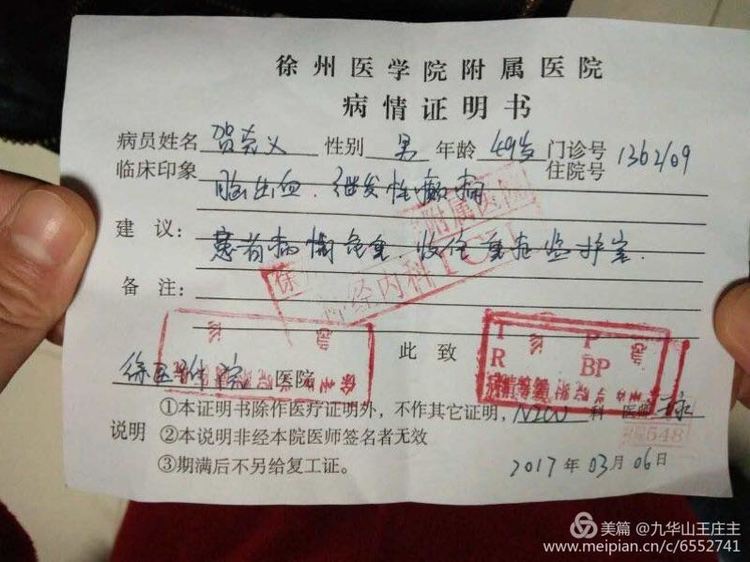 徐州医学院附属医院
病情证明书
病员姓名 贺克义 性别 男 年龄 49岁 门诊号 住院号 1362109
临床印象 脑出血、继发性癫痫
建 议： 患者病情危重，收住重症监护室。
附属医院
神经内科ICU
备 注：
此 致
徐医附院 医院
T P
R BP
①本证明书除作医疗证明外，不作其它证明，NICU 科 医师
说明 ②本说明非经本院医师签名者无效
548
③期满后不另给复工证。
2017 年 03 月 06 日
美篇 @九华山王庄主
www.meipian.cn/c/6552741